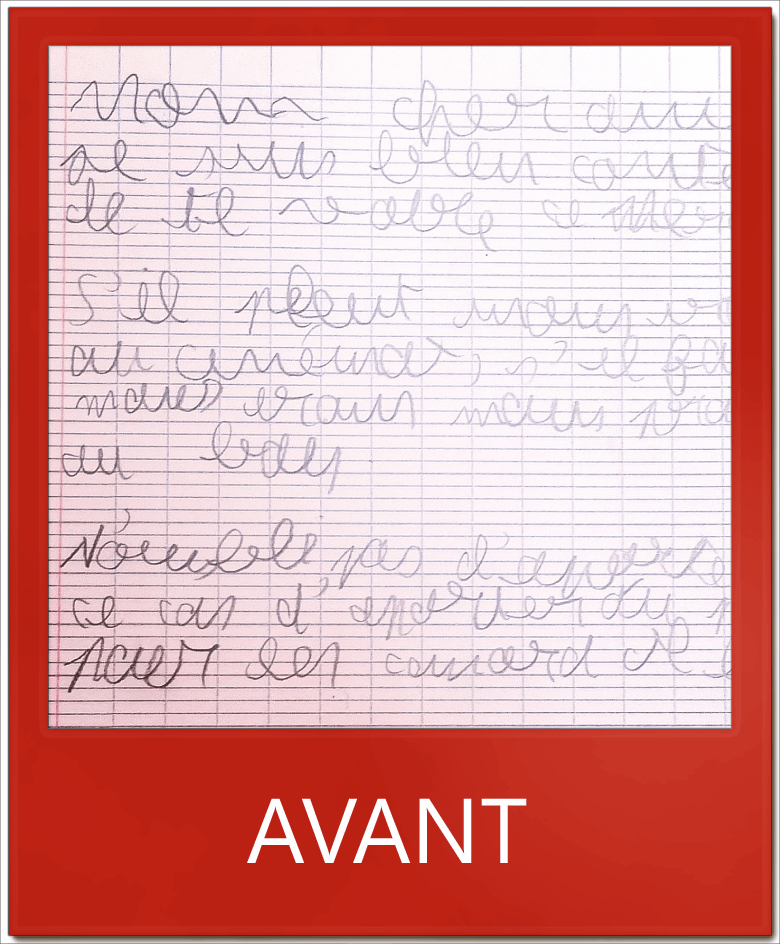 Mon cher ami
Je suis bien conte
de te voir ce Mer
S'il pleut nous v
au cinéma, s'il fa
nous irons nous pro
au bois
N'oublie pas d'apporte
ce cas d'apporter du p
pour les canard et
AVANT